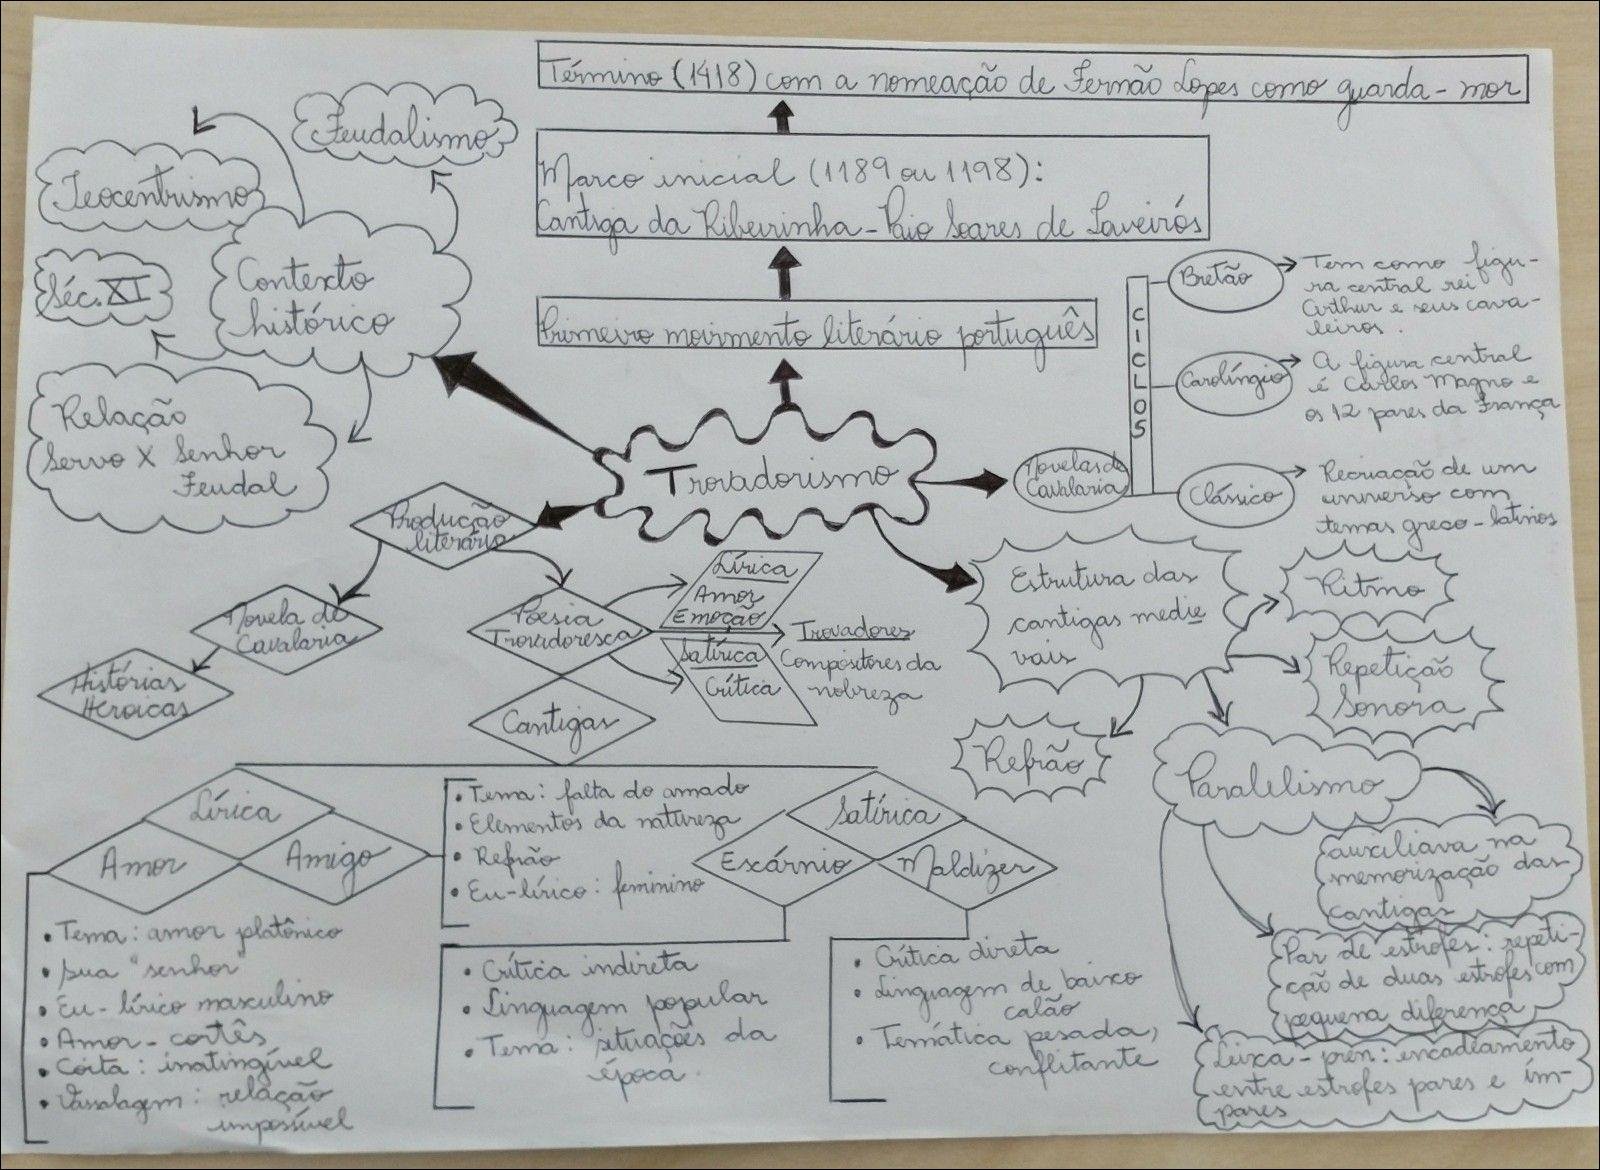 Término (1418) com a nomeação de Fernão Lopes como guarda-mor
Marco inicial (1189 ou 1198):
Cantiga da Ribeirinha - Paio Soares de Taveirós
Primeiro movimento literário português
Trovadorismo
Feudalismo
Teocentrismo
Séc. XI
Contexto
histórico
Relação
Servo X Senhor
Feudal
Produção
literária
Novela de
Cavalaria
Histórias
Heroicas
Poesia
Trovadoresca
Lírica
Amor
Emoção
Satírica
Crítica
Trovadores
Compositores da
nobreza
Cantigas
Novelas de
Cavalaria
CICLOS
Bretão
Tem como figu-
ra central rei
Arthur e seus cava-
leiros.
Carolíngio
A figura central
é Carlos Magno e
os 12 pares da França
Clássico
Recriação de um
universo com
temas greco-latinos
Estrutura das
cantigas medie
vais
Ritmo
Repetição
Sonora
Refrão
Paralelismo
auxiliava na
memorização das
cantigas
Par de estrofes: repeti-
ção de duas estrofes com
pequena diferença
Leixa-pren: encadeamento
entre estrofes pares e ím-
pares
Lírica
Amor
Amigo
• Tema: falta do amado
• Elementos da natureza
• Refrão
• Eu-lírico: feminino
• Tema: amor platônico
• Sua "senhor"
• Eu-lírico masculino
• Amor-cortês
• Coita: inatingível
• Vassalagem: relação
impossível
Satírica
Escárnio
Maldizer
• Crítica indireta
• Linguagem popular
• Tema: situações da
época.
• Crítica direta
• Linguagem de baixo
calão
• Temática pesada,
conflitante